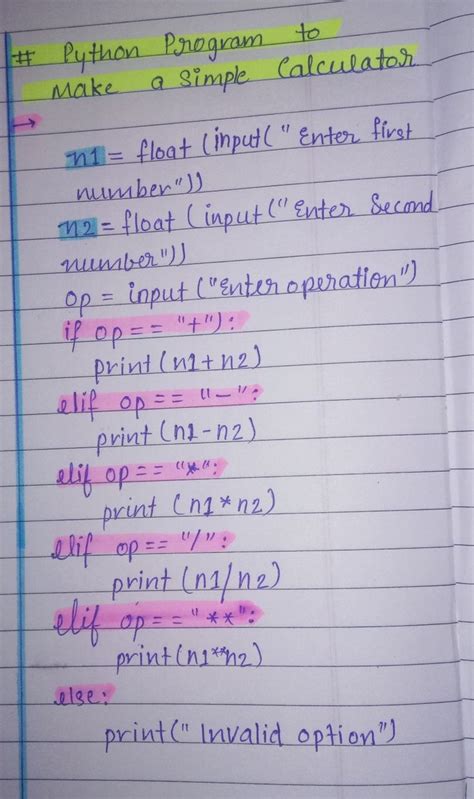 # Python Program to
Make a Simple Calculator
→
n1 = float (input(" Enter first
number"))
n2 = float (input ("Enter Second
number"))
op = input ("Enter operation")
if op == "+"):
print (n1+n2)
elif op == "-":
print (n1-n2)
elif op == "*":
print (n1*n2)
elif op == "/":
print (n1/n2)
elif op == "**":
print(n1**n2)
else:
print(" Invalid option")